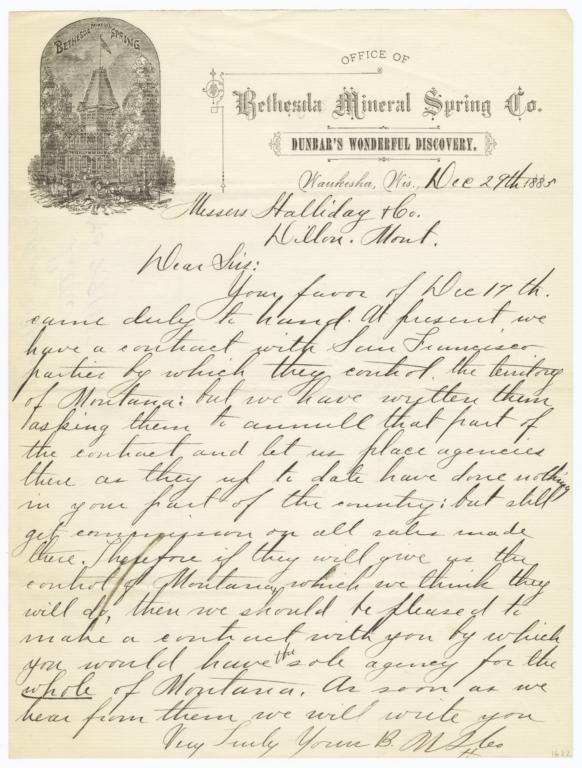 BETHESDA MINERAL SPRING
OFFICE OF
Bethesda Mineral Spring Co.
DUNBAR'S WONDERFUL DISCOVERY.
Waukesha, Wis., Dec 29th 1885
Messers Halliday & Co.
Dillon. Mont.
Dear Sirs:
Your favor of Dec 17th.
came duly to hand. At present we
have a contract with San Francisco
parties by which they control the territory
of Montana: but we have written them
asking them to annull that part of
the contract and let us place agencies
there as they up to date have done nothing
in your part of the country: but still
get commission on all sales made
there. Therefore if they will give us the
control of Montana, which we think they
will do, then we should be pleased to
make a contract with you by which
you would have the sole agency for the
whole of Montana. As soon as we
hear from them we will write you
Very Truly Yours B. M